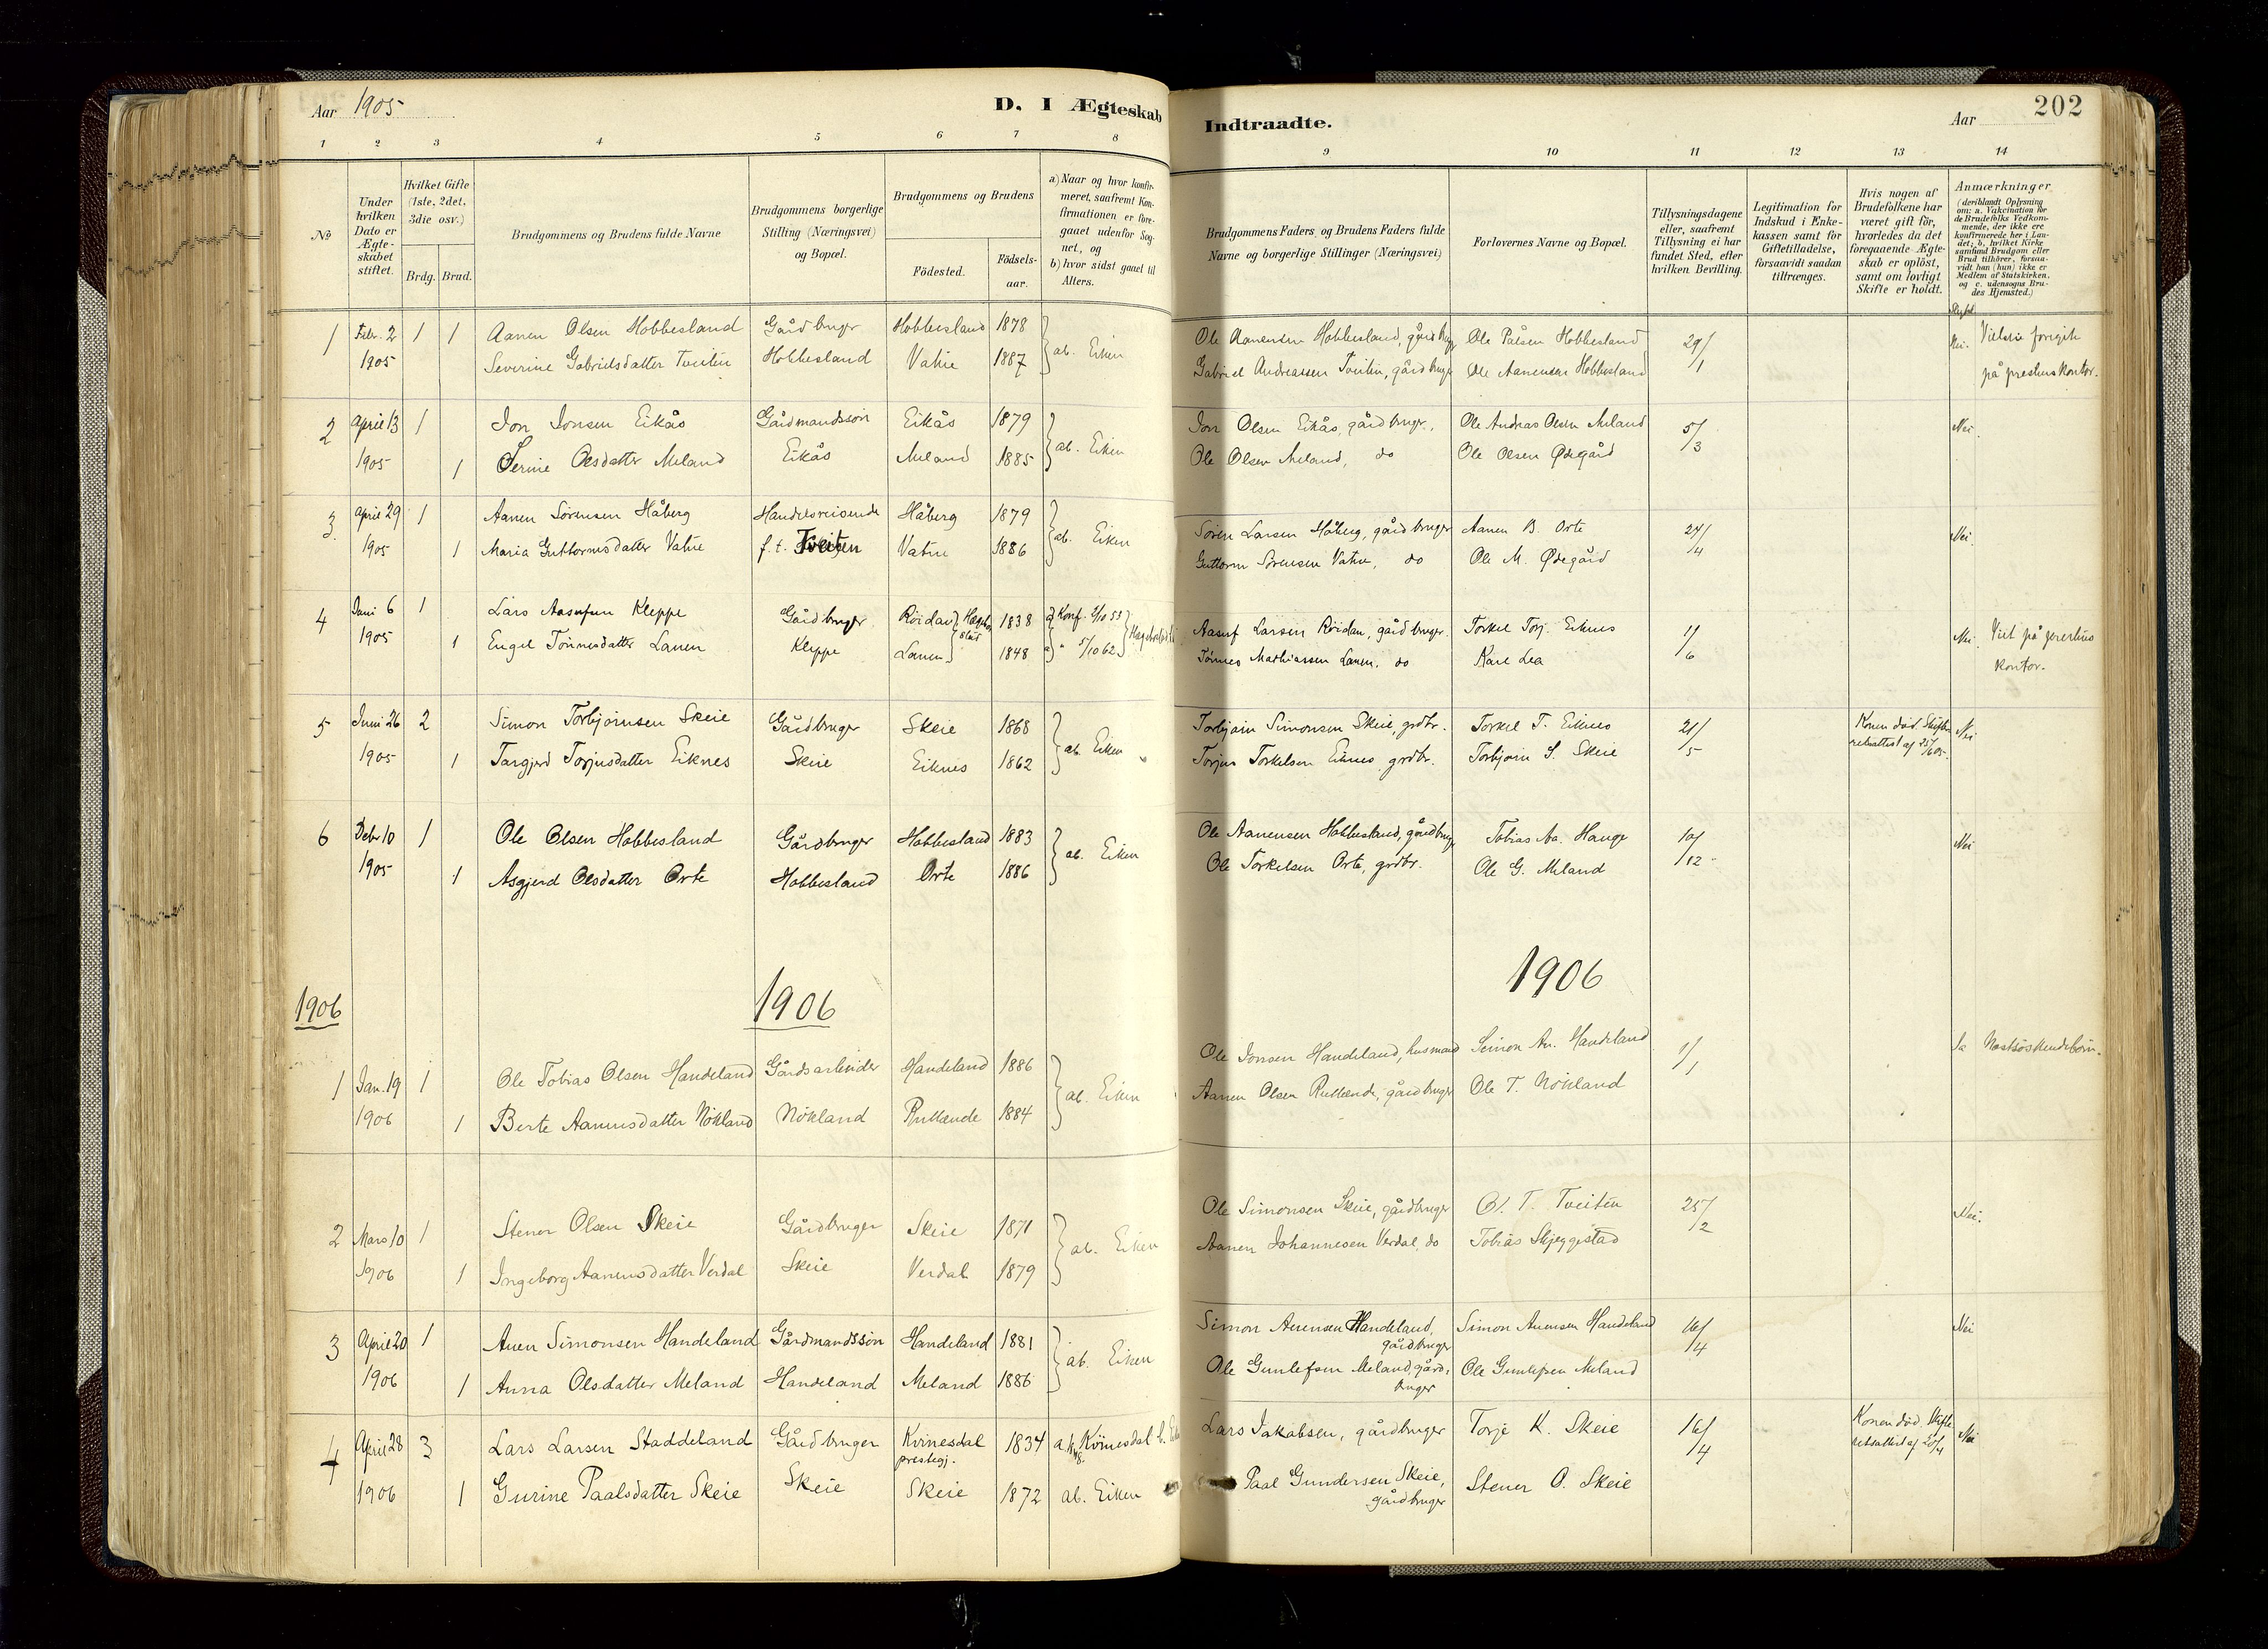 Aar 1905
D. I Ægteskab
Indtraadte.
Aar
202
1 2 3 4 5 6 7 8 9 10 11 12 13 14
No
Under hvilken Dato er Ægteskabet stiftet.
Hvilket Gifte (1ste, 2det, 3die osv.)
Brdg. Brud.
Brudgommens og Brudens fulde Navne
Brudgommens borgerlige Stilling (Næringsvei) og Bopæl.
Brudgommens og Brudens
Födested.
Födsels-aar.
a) Naar og hvor konfirmeret, saafremt Konfirmationen er foregaaet udenfor Sognet, og
b) hvor sidst gaaet til Alters.
Brudgommens Faders og Brudens Faders fulde Navne og borgerlige Stillinger (Næringsvei)
Forlovernes Navne og Bopæl.
Tillysningsdagene eller, saafremt Tillysning ei har fundet Sted, efter hvilken Bevilling.
Legitimation for Indskud i Enkekassen samt for Giftetilladelse, forsaavidt saadan tiltrænges.
Hvis nogen af Brudefolkene har været gift för, hvorledes da det foregaaende Ægteskab er oplöst, samt om lovligt Skifte er holdt.
Anmærkninger (deriblandt Oplysning om: a. Vakcination for de Brudefolks Vedkommende, der ikke ere konfirmerede her i Landet; b. hvilket Kirkesamfund Brudgom eller Brud tilhörer, forsaavidt han (hun) ikke er Medlem af Statskirken, og c. udensogns Brudes Hjemsted.)
1 Febr. 2 1 1 Aanen Olsen Hobbesland Gårdbruger Hobbesland 1878 ab. Eiken Ole Aanensen Hobbesland, gårdbrug Ole Pålsen Hobbesland 29/1 Nei. Vielsen foregik
1905 Severine Gabrielsdatter Tveiten Hobbesland Vatne 1887 Gabriel Andreassen Tveiten, gårdbruger Ole Aanensen Hobbesland på prestens kontor.
2 April 13 1 Jon Jonsen Eikås Gårdmandssøn Eikås 1879 ab. Eiken Jon Olsen Eikås, gårdbruger. Ole Andreas Olsen Meland 5/3 Nei.
1905 1 Serine Olsdatter Meland Eikås Meland 1885 Ole Olsen Meland, do Ole Olsen Ødegård
3. April 29 1 Aanen Sörensen Håberg Handelsreisende Håberg 1879 ab. Eiken Sören Larsen Håberg, gårdbruger Aanen B. Orte 24/4 Nei.
1905 1 Maria Guttormsdatter Vatne f. t. Tveiten Vatne 1886 Guttorm Sörensen Vatne, do Ole M. Ødegård
4 Juni 6 1 Lars Aasufsen Kleppe Gårdbruger Röidan 1838 a) Konf. 2/10 53 Aasuf Larsen Röidan, gårdbruger. Torkel Torj. Eiknes 11/6 Nei. Viet på prestens
1905 1 Engel Tönnesdatter Lanen Kleppe Lanen 1848 a) " 5/10 62 Tönnes Mathiassen Lanen, do Karl Lea kontor.
5 Juni 26 2 Simon Torbjörnsen Skeie Gårdbruger Skeie 1868 ab. Eiken Torbjörn Simonsen Skeie, grdbr. Torkel T. Eiknes 21/5 Konen död. Skifte- Nei
1905 1 Targjerd Torjusdatter Eiknes Skeie Eiknes 1862 Torjus Torkelsen Eiknes, grdbr. Torbjörn S. Skeie
6 Debr 10 1 Ole Olsen Hobbesland Gårdbruger Hobbesland 1883 ab. Eiken Ole Aanensen Hobbesland, gårdbrug Tobias Aa. Hauge 10/12 Nei
1905 1 Asgjerd Olsdatter Orte Hobbesland Orte 1886 Ole Torkelsen Orte, grdbr. Ole G. Meland
1906 1906 1906
1 Jan. 19 1 Ole Tobias Olsen Handeland Gårdsarbeider Handeland 1886 ab. Eiken Ole Jonsen Handeland, husmand Seimon An. Handeland 1/1 Ja Næstsöskendebörn.
1906 1 Berte Aanensdatter Nökland Nökland Rullende 1884 Aanen Olsen Rullende, gårdbruger Ole T. Nökland
2 Mars 10 1 Stener Olsen Skeie Gårdbruger Skeie 1871 ab. Eiken Ole Simonsen Skeie, gårdbruger Ol. T. Tveiten 25/2 Nei.
1906 1 Ingeborg Aanensdatter Verdal Skeie Verdal 1879 Aanen Johannesen Verdal, do Tobias Skjeggestad
3 April 20 1 Auen Simonsen Handeland Gårdmandssön Handeland 1881 ab. Eiken Simon Auensen Handeland, gårdbruger Simon Auensen Handeland 16/4 Nei
1906 1 Anna Olsdatter Meland Handeland Meland 1886 Ole Gunlefsen Meland, gårdbruger Ole Gunlefsen Meland
4 April 28 3 Lars Larsen Staddeland Gårdbruger Kvinesdal prestegj. 1834 Kvinesdal Lars Jakobsen, gårdbruger Torje K. Skeie 16/4 Konen död. Skifte Nei
1906 1 Gurine Paalsdatter Skeie Skeie Skeie 1872 ab. Eiken Paal Gundersen Skeie, gårdbruger Stener O. Skeie